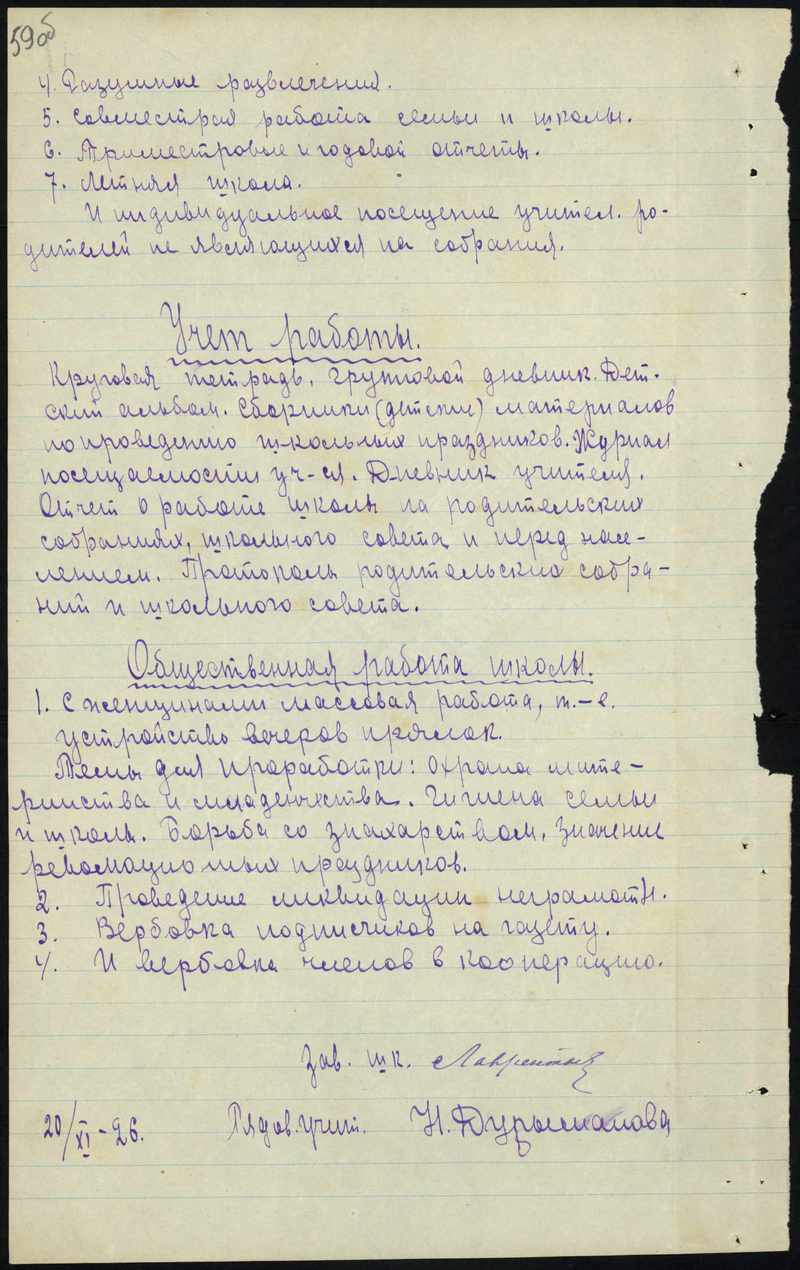 59об
4. Разумные развлечения.
5. Совместная работа семьи и школы.
6. Триместровые и годовой отчеты.
7. Летняя школа.
И индивидуальное посещение учител. ро-
дителей не являющихся на собрания.
Учет работы.
Круговая тетрадь, групповой дневник. Дет-
ский альбом. Сборники (детские) материалов
по проведению школьных праздников. Журнал
посещаемости уч-ся. Дневник учителя.
Отчет о работе школы на родительских
собраниях, школьного совета и перед насе-
лением. Протоколы родительских собра-
ний и школьного совета.
Общественная работа школы.
1. С женщинами массовая работа, т.-е.
устройство вечеров прялок.
Темы для проработки: Охрана мате-
ринства и младенчества. Гигиена семьи
и школы. Борьба со знахарством. Значение
революционных праздников.
2. Проведение ликвидации неграмотн.
3. Вербовка подписчиков на газету.
4. И вербовка членов в кооперацию.
Зав. шк.
20/XI-26. Рядов. учит. Н.